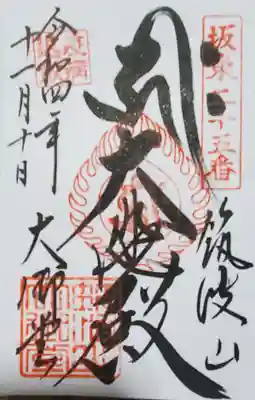 坂東二十五番
奉拝
筑波山
大悲殿
大御堂
令和四年
十一月十日